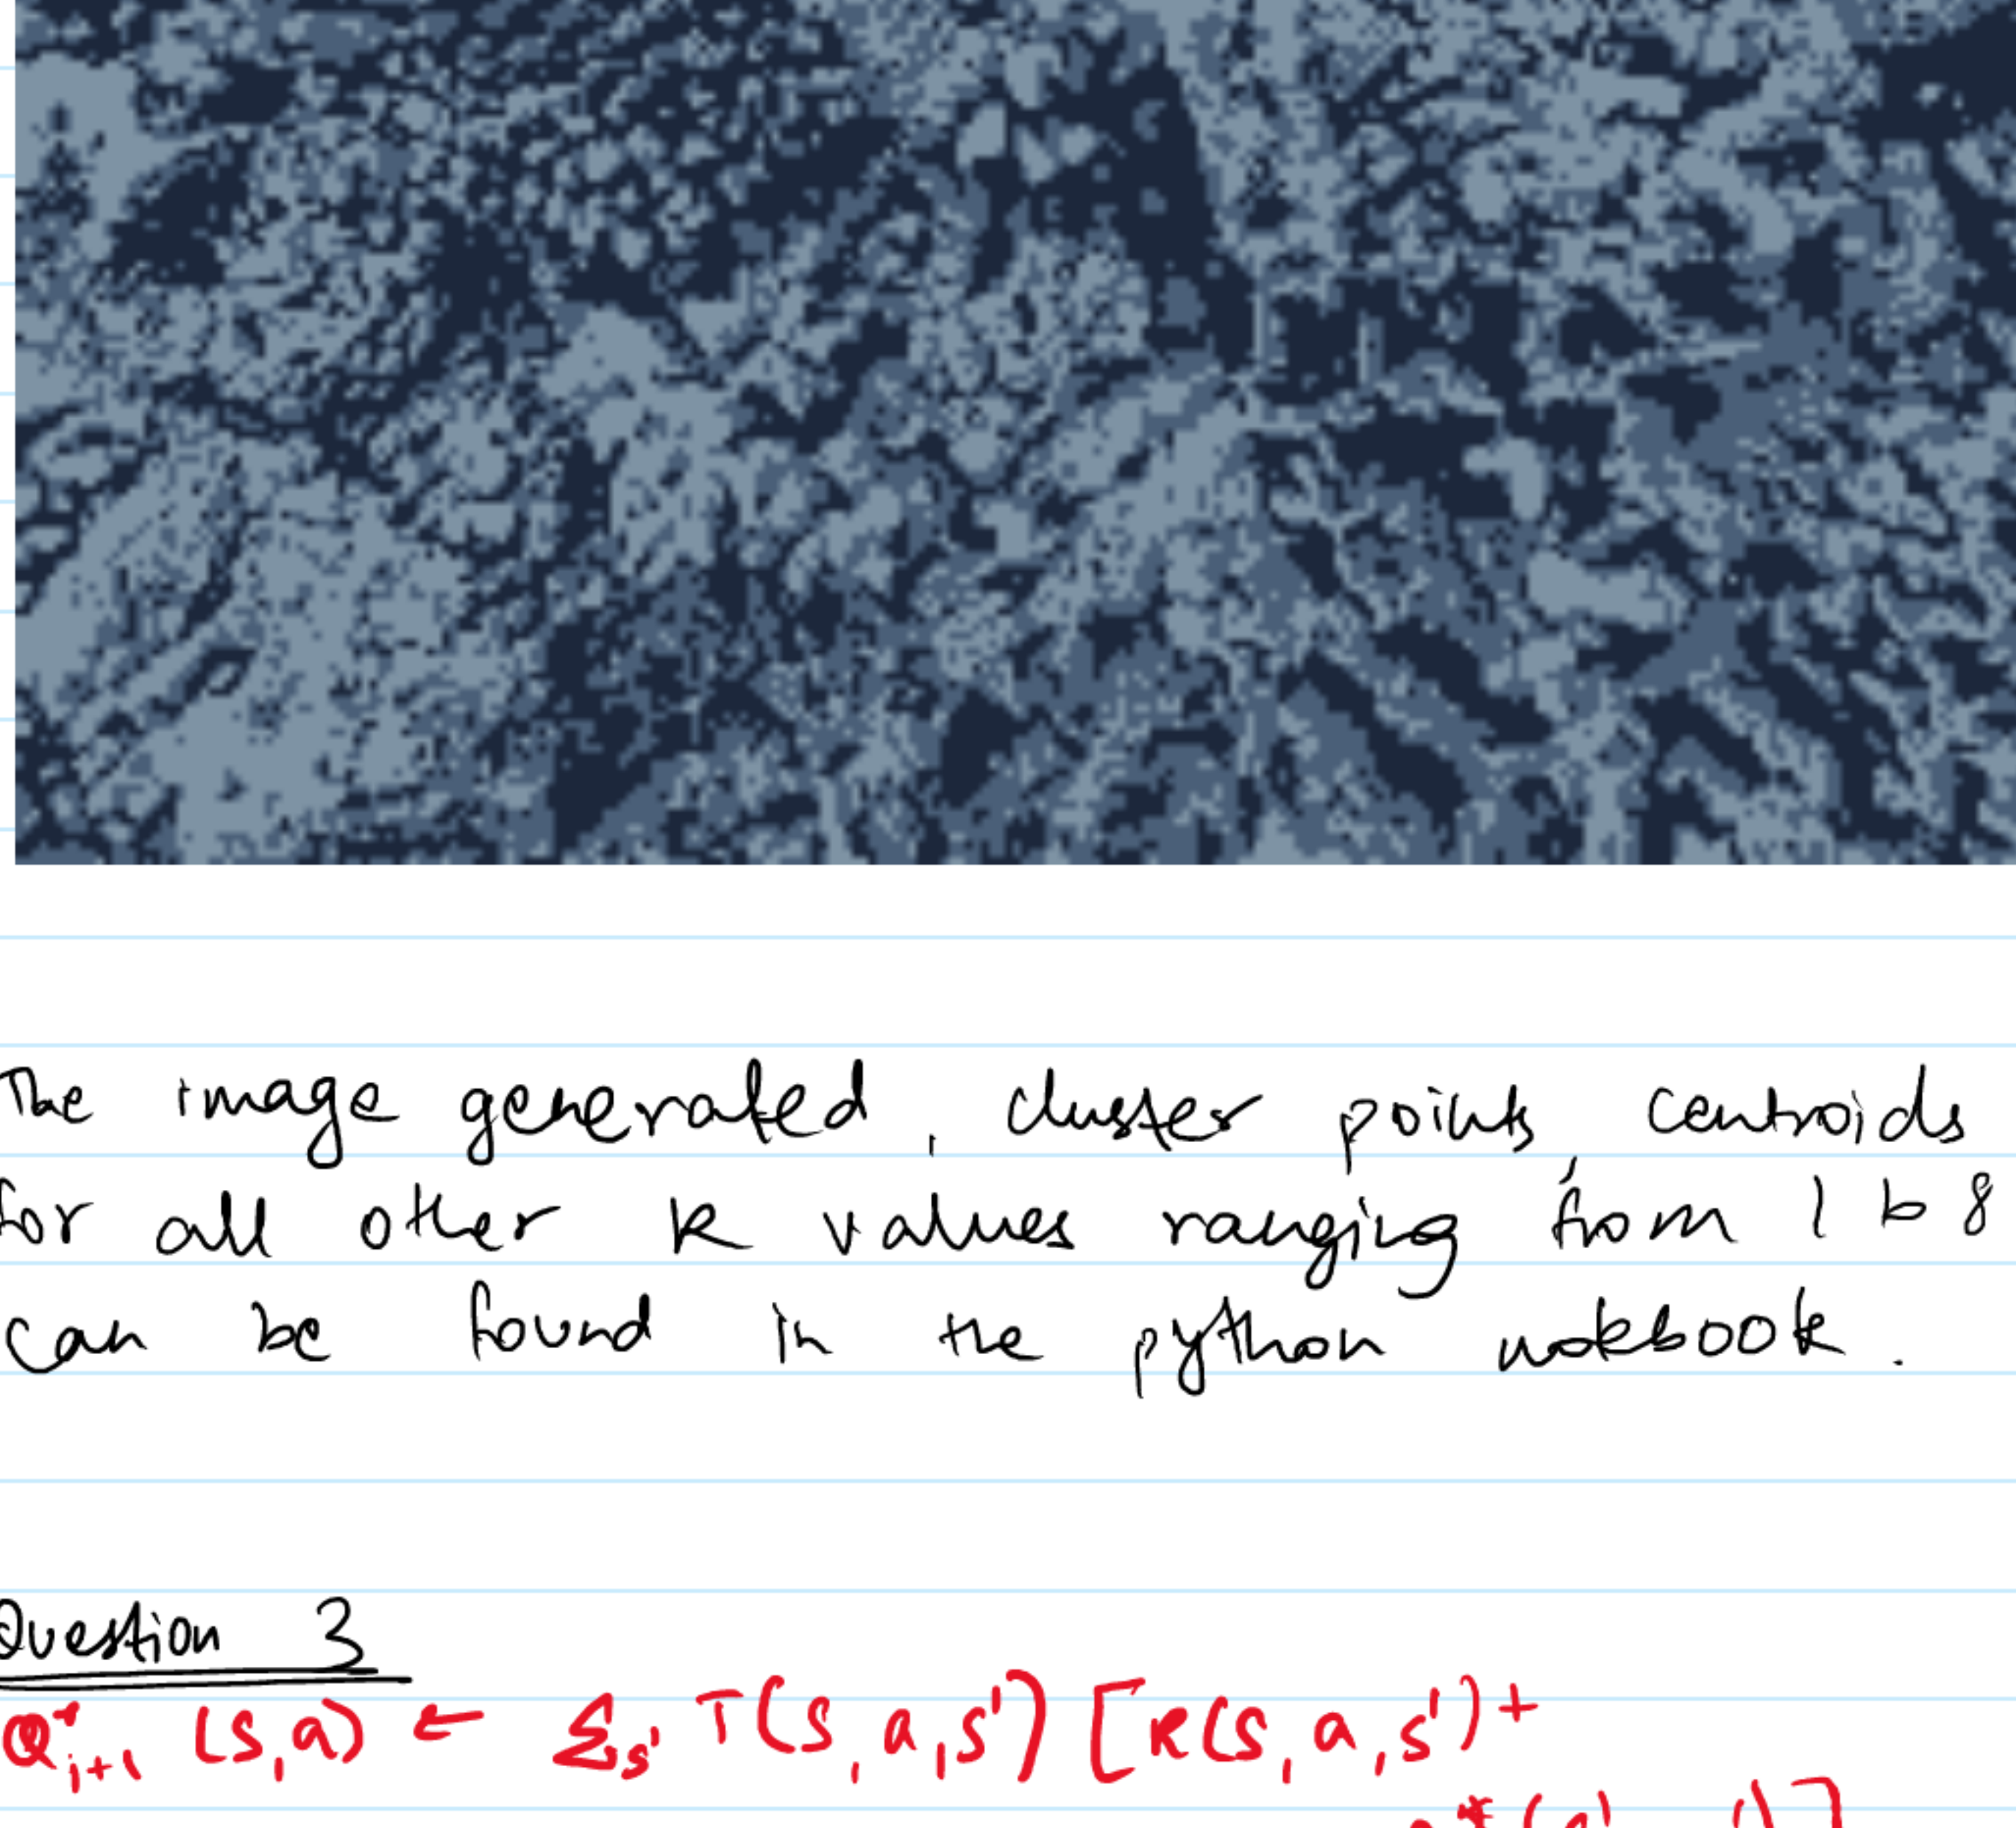 The image generated, cluster points, centroids
for all other k values ranging from 1 to 8
can be found in the python notebook.
Question 3
Q*ᵢ₊₁ (s,a) ← Σs' T(s,a,s') [R(s,a,s') +